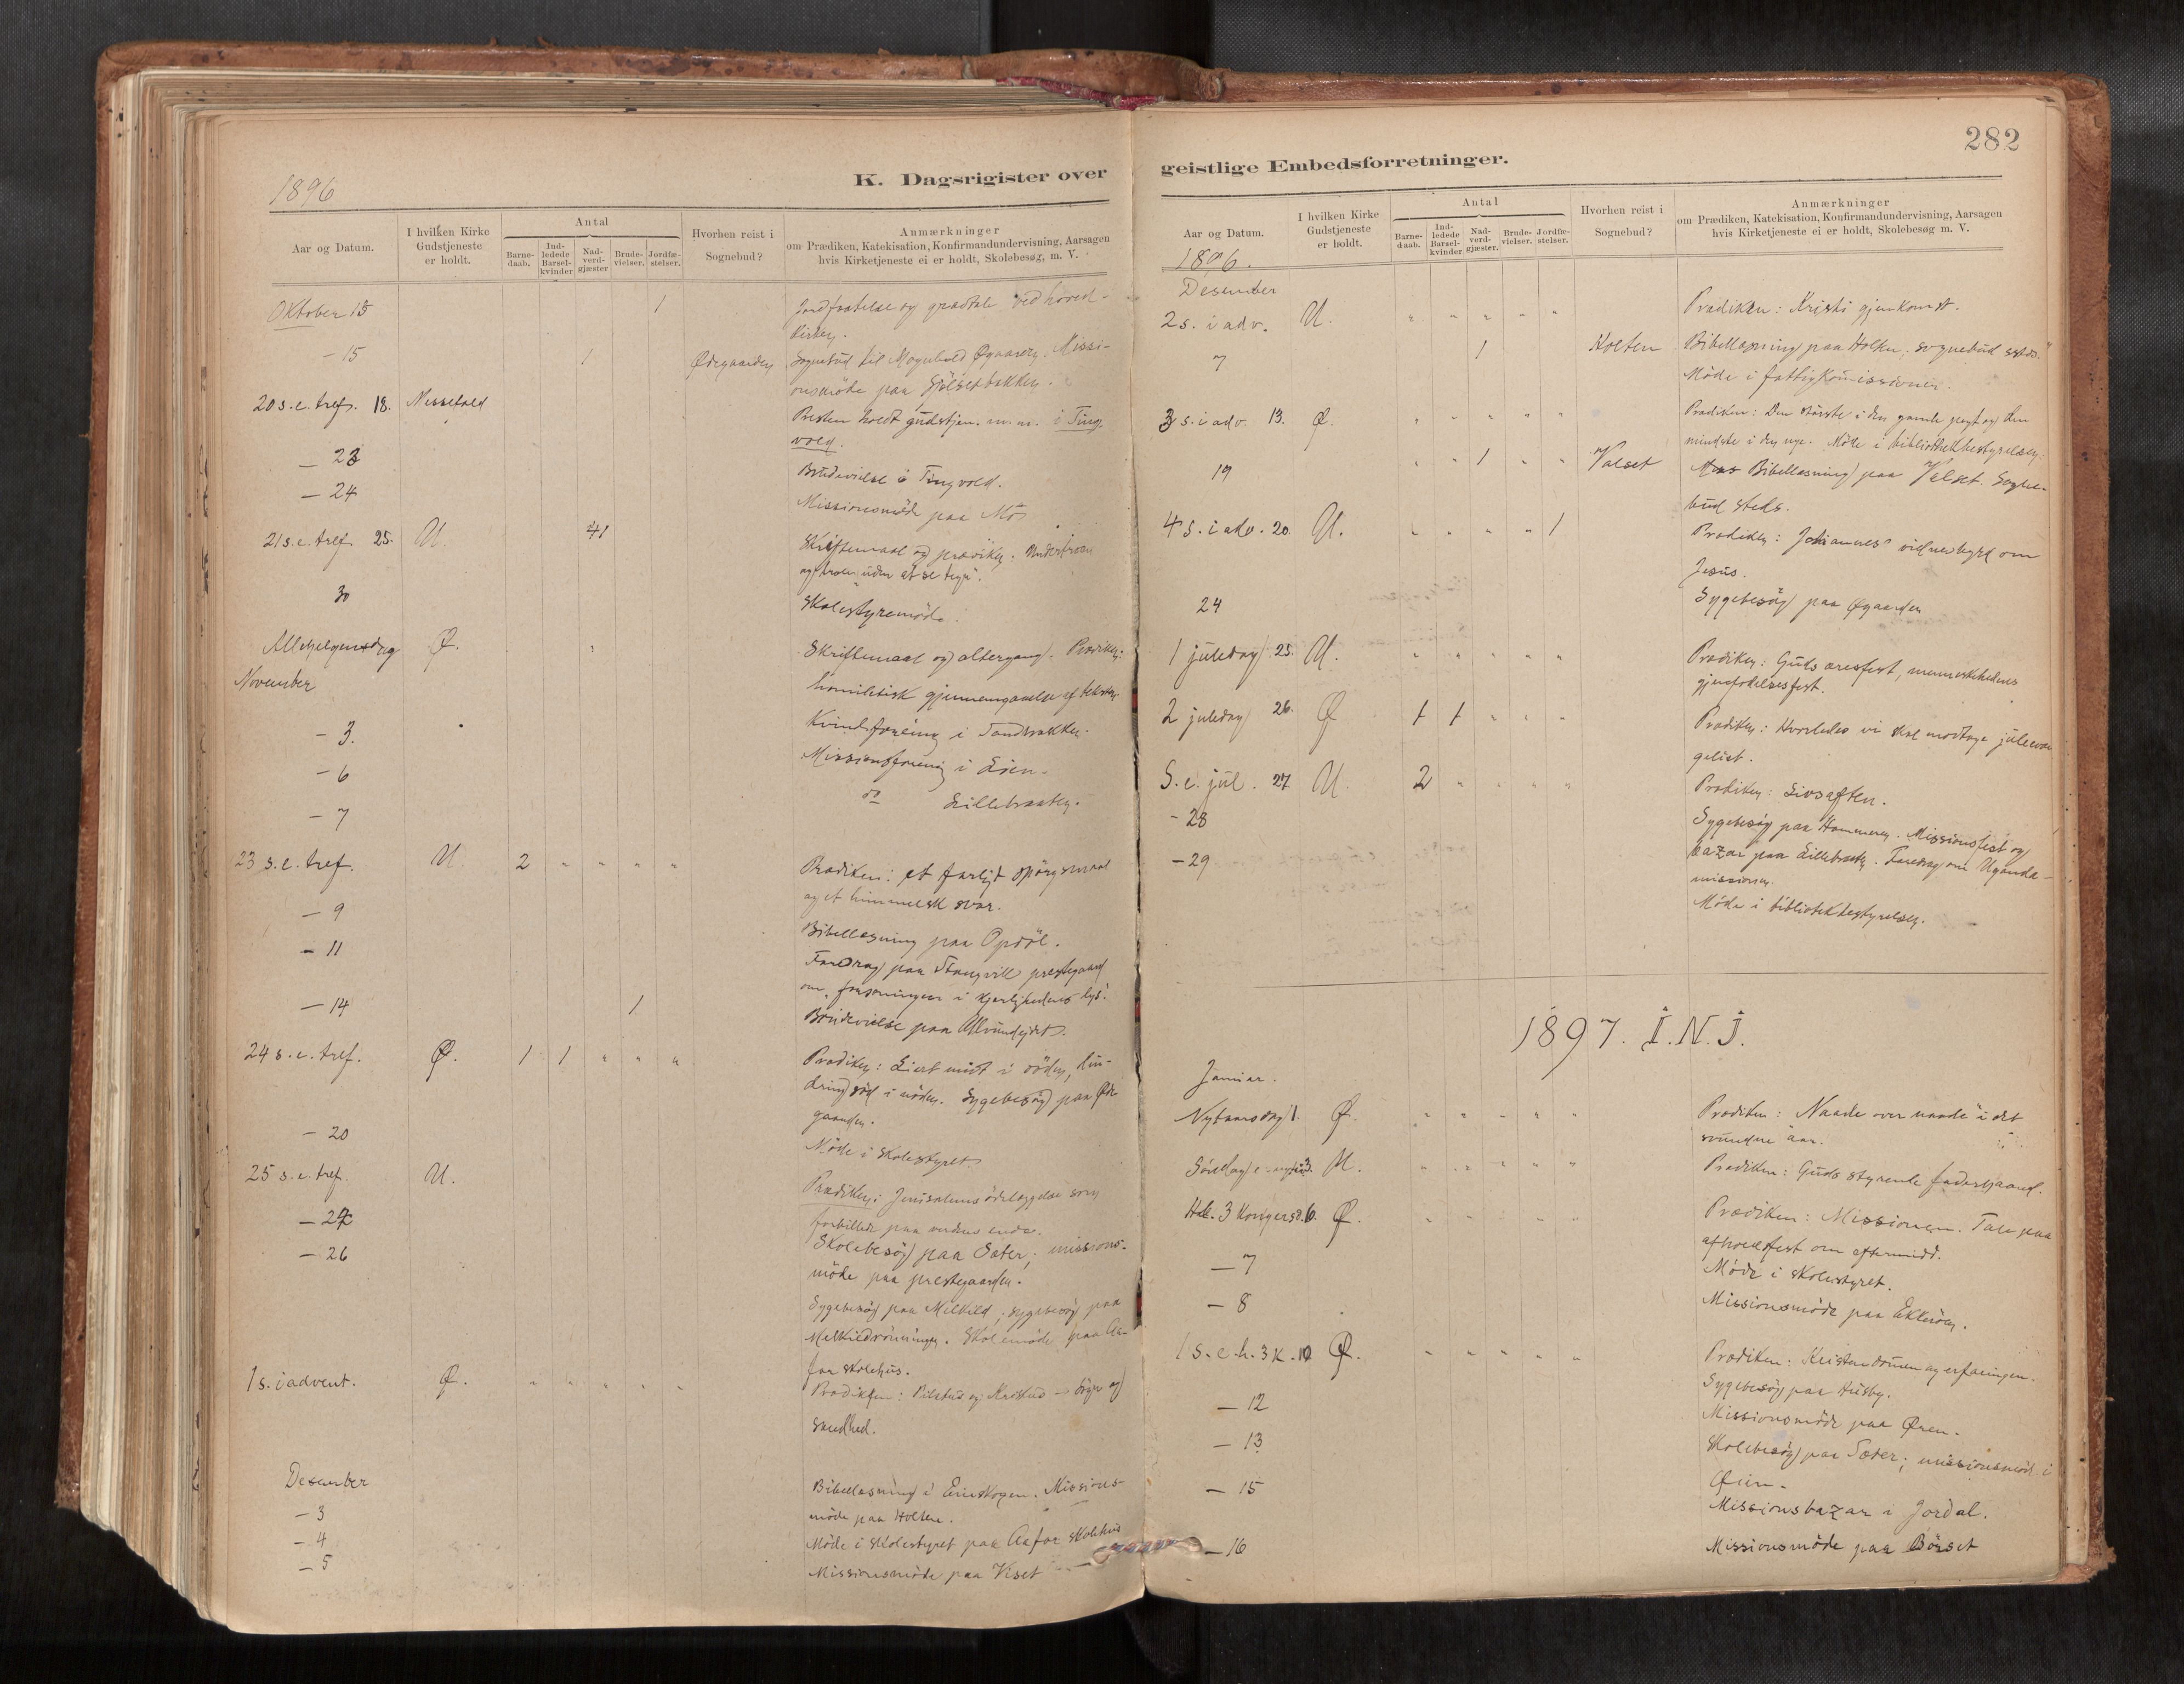 1896
K. Dagsrigister over
Aar og Datum.
I hvilken Kirke Gudstjeneste er holdt.
Antal
Barne-daab.
Ind-ledede Barsel-kvinder
Nad-verd-gjæster
Brude-vielser.
Jordfæ-stelser.
Hvorhen reist i Sognebud?
Anmærkninger
om Prædiken, Katekisation, Konfirmandundervisning, Aarsagen
hvis Kirketjeneste ei er holdt, Skolebesøg, m. V.
Oktober 15 1 Jordfæstelse og ved hoved-
kirken.
- 15 1 Ødegaarden Sognebud til Øgaarden. Missi-
onsmöde paa
20 s. e. tref. 18. Nessefold Presten holdt gudstjen. m.m. i Ting-
vold.
- 23 Brudevielse i Tingvold.
- 24 Missionsmöde paa Mo
21 s. e. tref. 25. U. 41 Skriftemaal og prædiken.
og troen uden at se tegn".
30 Skolestyremöde.
Allehelgensdag Ø. Skriftemaal og altergang. Prædiken:
November homiletisk gjennemgaaelse af teksten
- 3. Kvindeforening i
- 6 Missionsforening i
- 7 do Lillebraaten.
23 s. e. tref. U. 2 " " " " Prædiken: et farligt spörgsmaal
og et himmelsk svar.
- 9 Bibellæsning paa Opdöl.
- 11 Foredrag paa Stangvik prestegaard
om "forsoningen i kjerlighedens lys".
- 14 1 Brudevielse paa
24 s. e. tref. Ø. 1 1 " " " Prædiken: i döden, lin-
dring i nöden. Sygebesög paa Øde-
gaarden.
- 20 Möde i skolestyret.
25 s. e. tref. U. Prædiken: Jerusalems ödelæggelse som
forbillede paa verdens ende.
- 24 Skolebesög paa Sæter; missions-
möde paa prestegaarden.
- 26 Sygebesög paa ; sygebesög paa
Skolemöde paa Aa-
faa skolehus.
1 s. i advent. Ø. " " " " " Prædiken: Pilatus og Kristus - og
sandhed.
Desember
- 3 Bibellæsning i . Missions-
möde paa Holten.
- 4 Möde i skolestyret paa Aafar skolehus
- 5 Missionsmöde paa
282
geistlige Embedsforretninger.
Aar og Datum.
I hvilken Kirke Gudstjeneste er holdt.
Antal
Barne-daab.
Ind-ledede Barsel-kvinder
Nad-verd-gjæster.
Brude-vielser.
Jordfæ-stelser.
Hvorhen reist i Sognebud?
Anmærkninger
om Prædiken, Katekisation, Konfirmandundervisning, Aarsagen
hvis Kirketjeneste ei er holdt, Skolebesøg m. V.
1896.
Desember
2 s. i adv. U. " " " " " Prædiken: Kristi gjenkomst.
7 1 Holten Bibellæsning paa Holten, sognebud ssteds.
Möde i fattigkomissionen.
3 s. i adv. 13. Ø. " " " " " Prædiken: Den störste i den gamle pagt og den
mindste i den nye. Möde i bibliothekbestyrelsen.
19 " " 1 " " Valset Bibellæsning paa Valset. Sogne-
bud steds.
4 s. i adv. 20. U. " " " " 1 Prædiken: Johannes' vidnesbyrd om
Jesus.
24 Sygebesög paa Øgaarden
1 juledag 25. U. " " " " " Prædiken: Guds æresfest, menneskehedens
gjenfödelsesfest.
2 juledag 26. Ø 1 1 " " " Prædiken: Hvorledes vi skal modtage juleevan-
geliet.
S. e. jul. 27 U. 2 " " " " Prædiken: Livsaften.
- 28 Sygebesög paa Hammeren. Missionsfest og
bazar paa Lillebraaten. Foredrag om Uganda-
missionen.
- 29 Möde i bibliotekbestyrelsen.
1897. I. N. J.
Januar.
Nytaarsdag 1. Ø. " " " " " Prædiken: "Naade over naade" i det
svundne aar.
Söndag e. nytaar 3. U. " " " " " Prædiken: Guds styrende faderhaand.
Hel. 3 Kongersd. 6. Ø. " " " " Prædiken: Missionen. Tale paa
afholdsfest om eftermidd.
- 7 Möde i skolestyret.
- 8 Missionsmöde paa
1 s. e. h. 3 k. 10 Ø. " " " " " Prædiken: Kristendommen og erfaringen.
Sygebesög paa Husby.
- 12 Missionsmöde paa Øren.
- 13 Skolebesög paa Sæter; missionsmöde i
Øien.
- 15 Missionsbazar i Jordal.
- 16 Missionsmöde paa Börset